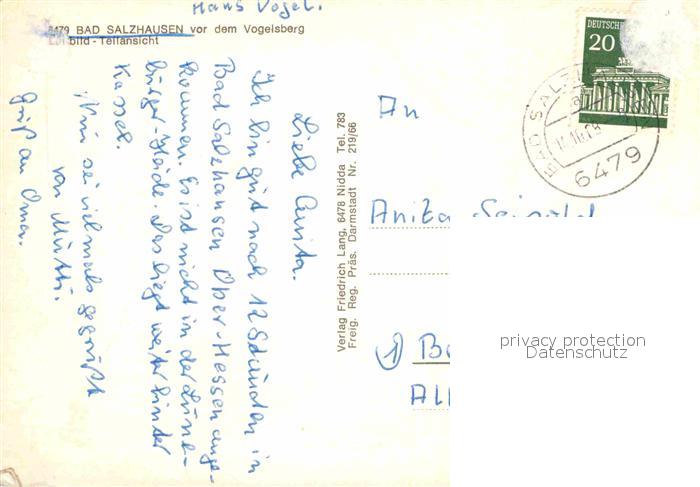 Hans Vogel.
6479 BAD SALZHAUSEN vor dem Vogelsberg
Luftbild - Teilansicht
Liebe Anita.
Ich bin gut nach 12 Stunden in
Bad Salzhausen Ober-Hessen ange-
kommen. Es ist nicht in der Lüne-
burger-Heide. Das liegt weiter hinter
Kassel.
Nun sei vielmals gegrüßt
von Mutti.
Gruß an Oma.
Verlag Friedrich Lang, 6478 Nidda Tel. 783
Freig. Reg. Präs. Darmstadt Nr. 219/66
DEUTSCHE
20
BAD SALZ
6479
An
Anita
1 B
All
privacy protection
Datenschutz